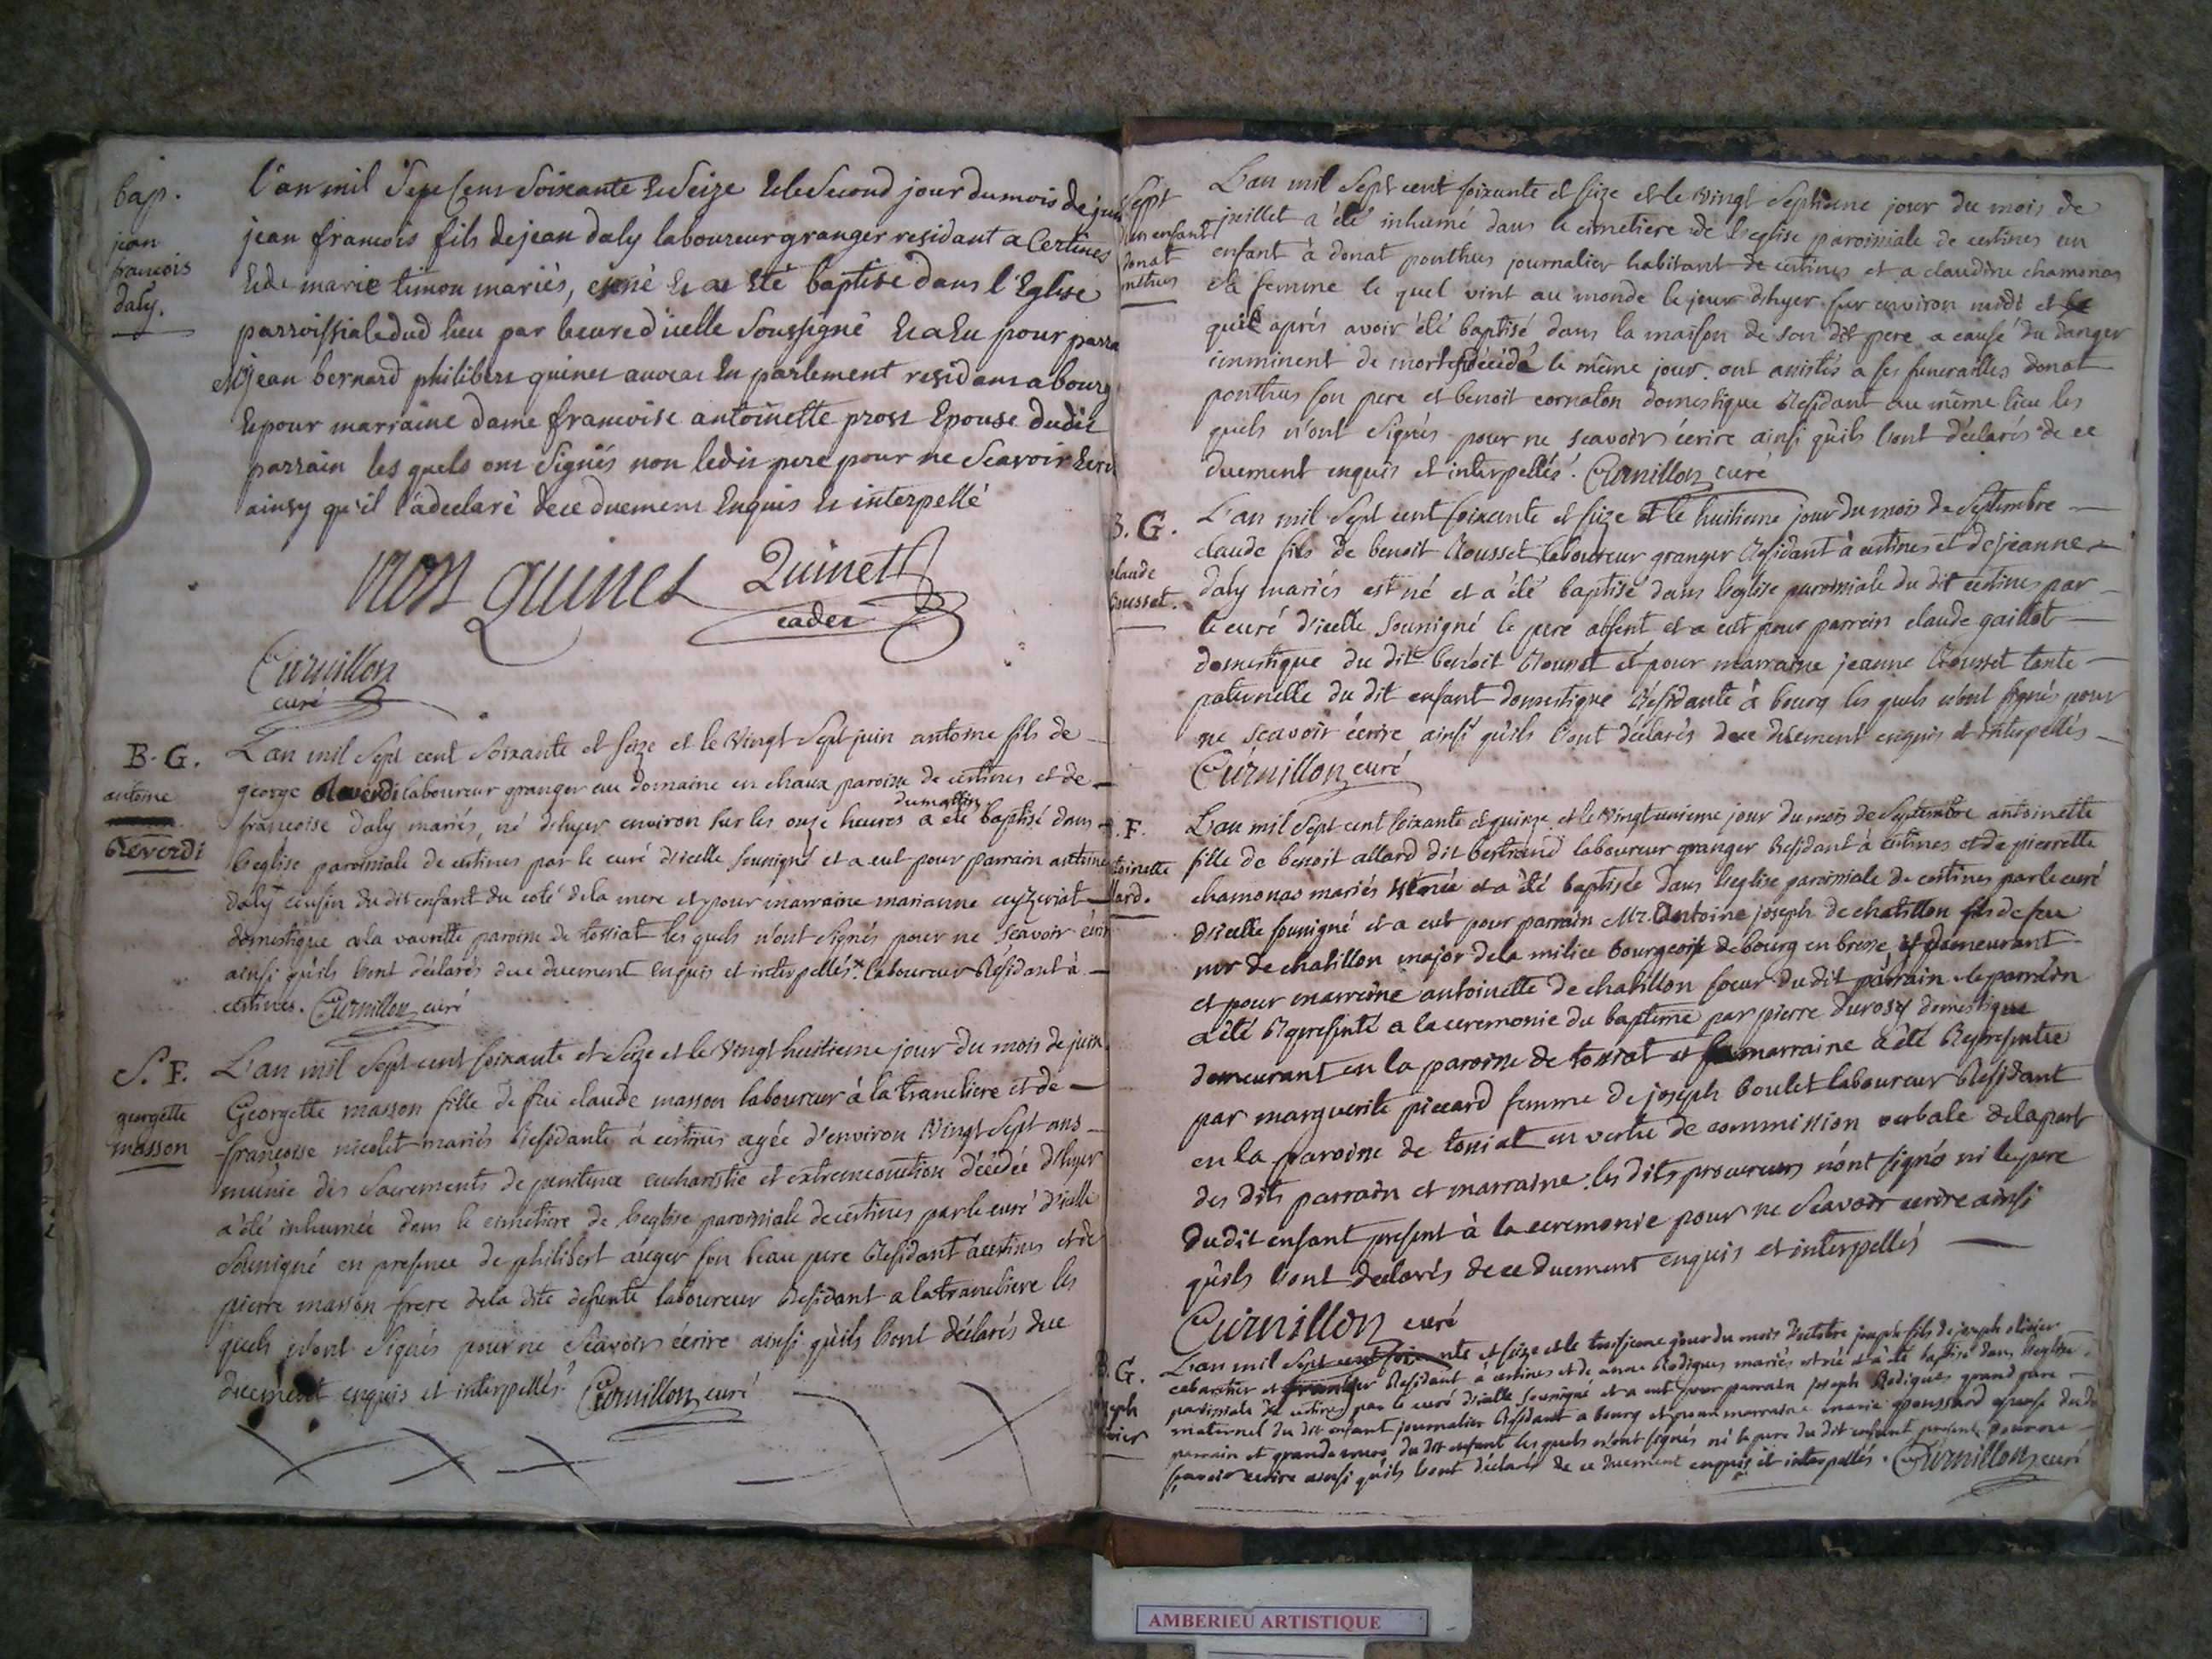 bap.
jean
francois
daly.
l'an mil Sept Cens Soixante et Seize et le Second jour du mois de
jean francois fils de jean daly laboureur granger residant a Certines
et de marie timon mariés, est né et a eté baptisé dans l'Eglise
parroissiale dud lieu par le curé d'icelle Soussigné et a eu pour
jean bernard philibert quinet avocat en parlement residant a bourg
et pour marraine dame francoise antoinette prost Epouse dudit
parrain les quels ont Signés non ledit pere pour ne Scavoir
ainsy qu'il l'a declaré de ce duement Enquis et interpellé
quinet Quinet
cadet
Curnillon
curé
B. G.
antoine
Reverdi
L'an mil Sept cent Soixante et Seize et le vingt Sept juin antoine fils de
george Reverdi laboureur granger au domaine en chaux paroisse de certines et de
francoise daly mariés, né d'hyer environ sur les onze heures du mattin a eté baptisé dans
l'eglise paroissiale de certines par le curé d'icelle soussigné et a eut pour parrain antoine
daly cousin du dit enfant du coté de la mere et pour marraine marianne
domestique a la vavrette paroisse de tossiat les quels n'ont Signés pour ne Scavoir
ainsi qu'ils l'ont déclarés de ce duement enquis et interpellés. laboureur Résidant à
certines. Curnillon curé
S. F.
georgette
masson
L'an mil Sept cent soixante et Seize et le vingt huitieme jour du mois de juin
Georgette masson fille de feu claude masson laboureur à la trancliere et de
françoise nicolet mariés Residante à certines agée d'environ vingt Sept ans
munie des Sacrements de penitence eucharistie et extremeonction décédée d'hyer
a été inhumée dans le cimetiere de l'eglise paroissiale de certines par le curé d'icelle
Soussigné en presence de philibert auger son beau pere Residant à certines et de
pierre masson frere de la dite defunte laboureur Residant a la trancliere les
quels n'ont Signés pour ne Scavoir écrire ainsi qu'ils l'ont déclarés de ce
duement enquis et interpellés. Curnillon curé
Sept
d'un enfant
donat
nthus
L'an mil Sept cent soixante et seize et le vingt Septieme jour du mois de
juillet a été inhumé dans le cimetiere de l'eglise paroissiale de certines un
enfant à donat ponthus journalier habitant de certines et a claudine chamonas
sa femme le quel vint au monde le jour d'hyer sur environ midi et
qui aprés avoir été baptisé dans la maison de son dit pere a cause du danger
imminent de mort décéda le même jour. ont assistés a ses funerailles donat
ponthus son pere et benoit cornaton domestique Residant au même lieu les
quels n'ont Signés pour ne scavoir écrire ainsi qu'ils l'ont déclarés de ce
duement enquis et interpellés. Curnillon curé
B. G.
claude
Rousset.
L'an mil Sept cent soixante et seize et le huitieme jour du mois de Septembre
claude fils de benoit Rousset laboureur granger Résidant à certines et de jeanne
daly mariés est né et a été baptisé dans l'eglise paroissiale du dit certines par
le curé d'icelle soussigné le pere absent et a eut pour parrein claude gaillot
domestique du dit benoit Rousset et pour marraine jeanne Rousset tante
paternelle du dit enfant domestique Résidante à bourg les quels n'ont signés pour
ne scavoir écrire ainsi qu'ils l'ont déclarés de ce duement enquis et interpellés
Curnillon curé
. F.
toinette
llard.
L'an mil Sept cent soixante et quinze et le vingt unieme jour du mois de Septembre antoinette
fille de benoit allard dit bertrand laboureur granger Residant à certines et de pierrette
chamonas mariés est née et a été baptisée dans l'eglise paroissiale de certines par le curé
d'icelle soussigné et a eut pour parrain Mr. Antoine joseph de chatillon fils de feu
mr de chatillon major de la milice bourgeoise de bourg en bresse, y demeurant
et pour marreine antoinette de chatillon soeur du dit parrain le parrein
a été Représenté a la ceremonie du baptême par pierre durosy domestique
demeurant en la paroisse de tossiat et la marraine a été Representée
par marguerite piccard femme de joseph boulet laboureur Residant
en la paroisse de tossiat en vertu de commission verbale de la part
des dits parrain et marraine. les dits procureurs n'ont signés ni le pere
du dit enfant present à la ceremonie pour ne Scavoir ecrire ainsi
qu'ils l'ont declarés de ce duement enquis et interpellés
Curnillon curé
B. G.
seph
ivier
L'an mil Sept cent soixante et seize et le troisieme jour du mois d'octobre joseph fils de joseph olivier
cabartier et granger Residant à certines et de anne Rodigues mariés est né et a été baptisé dans l'eglise
paroissiale de certines par le curé d'icelle soussigné et a eut pour parrain joseph Rodigues grand pere
maternel du dit enfant journalier Residant a bourg et pour marraine marie poussard epouse du dit
parrain et grande mere du dit enfant les quels n'ont signés ni le pere du dit enfant present pour ne
scavoir ecrire ainsi qu'ils l'ont déclaré de ce duement enquis et interpellés. Curnillon curé
AMBERIEU ARTISTIQUE